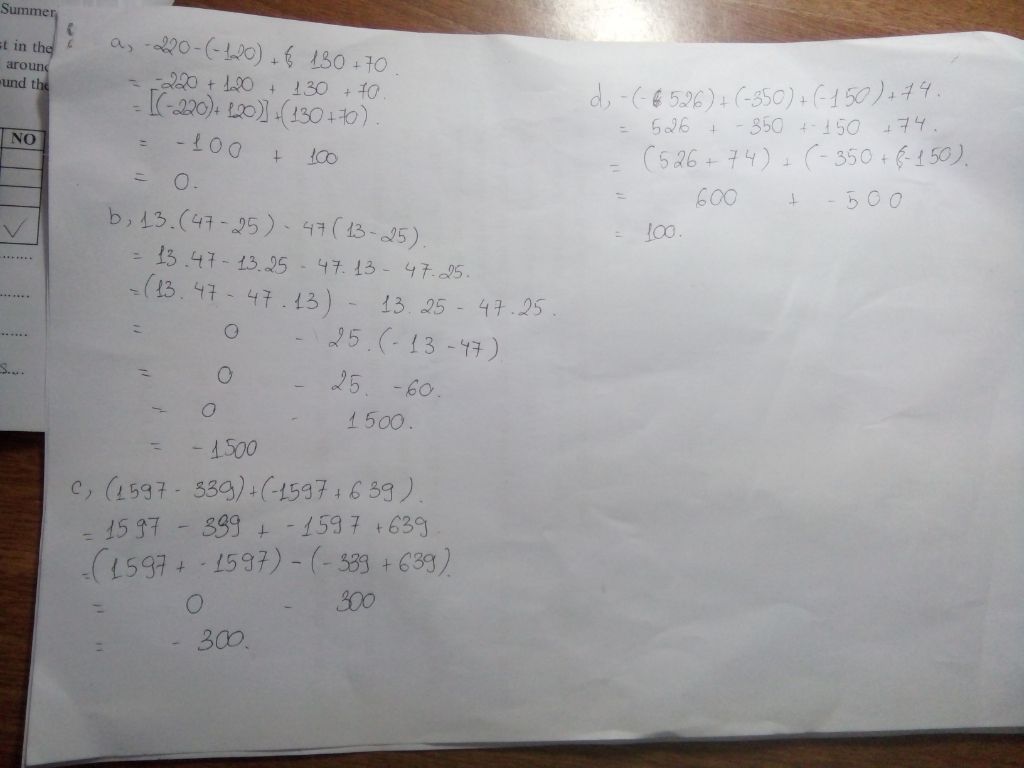 Summer
st in the
around
und the
NO
a, -220-(-120) + 130 +70.
= -220 + 120 + 130 +70.
= [(-220)+120)]+(130+70).
= -100 + 100
= 0.
b, 13.(47-25) - 47(13-25).
= 13.47-13.25 - 47.13 - 47.25.
=(13.47 - 47.13) - 13.25 - 47.25.
= 0 - 25.(-13-47).
= 0 - 25. -60.
= 0 - 1500.
= -1500
c, (1597 - 339)+(-1597+639).
= 1597 - 339 + -1597 +639.
=(1597 + -1597) - (-339 +639).
= 0 - 300
= - 300.
d, -(-526)+(-350)+(-150)+74.
= 526 + -350 + -150 +74.
= (526 + 74) + (-350 + (-150).
= 600 + -500
= 100.